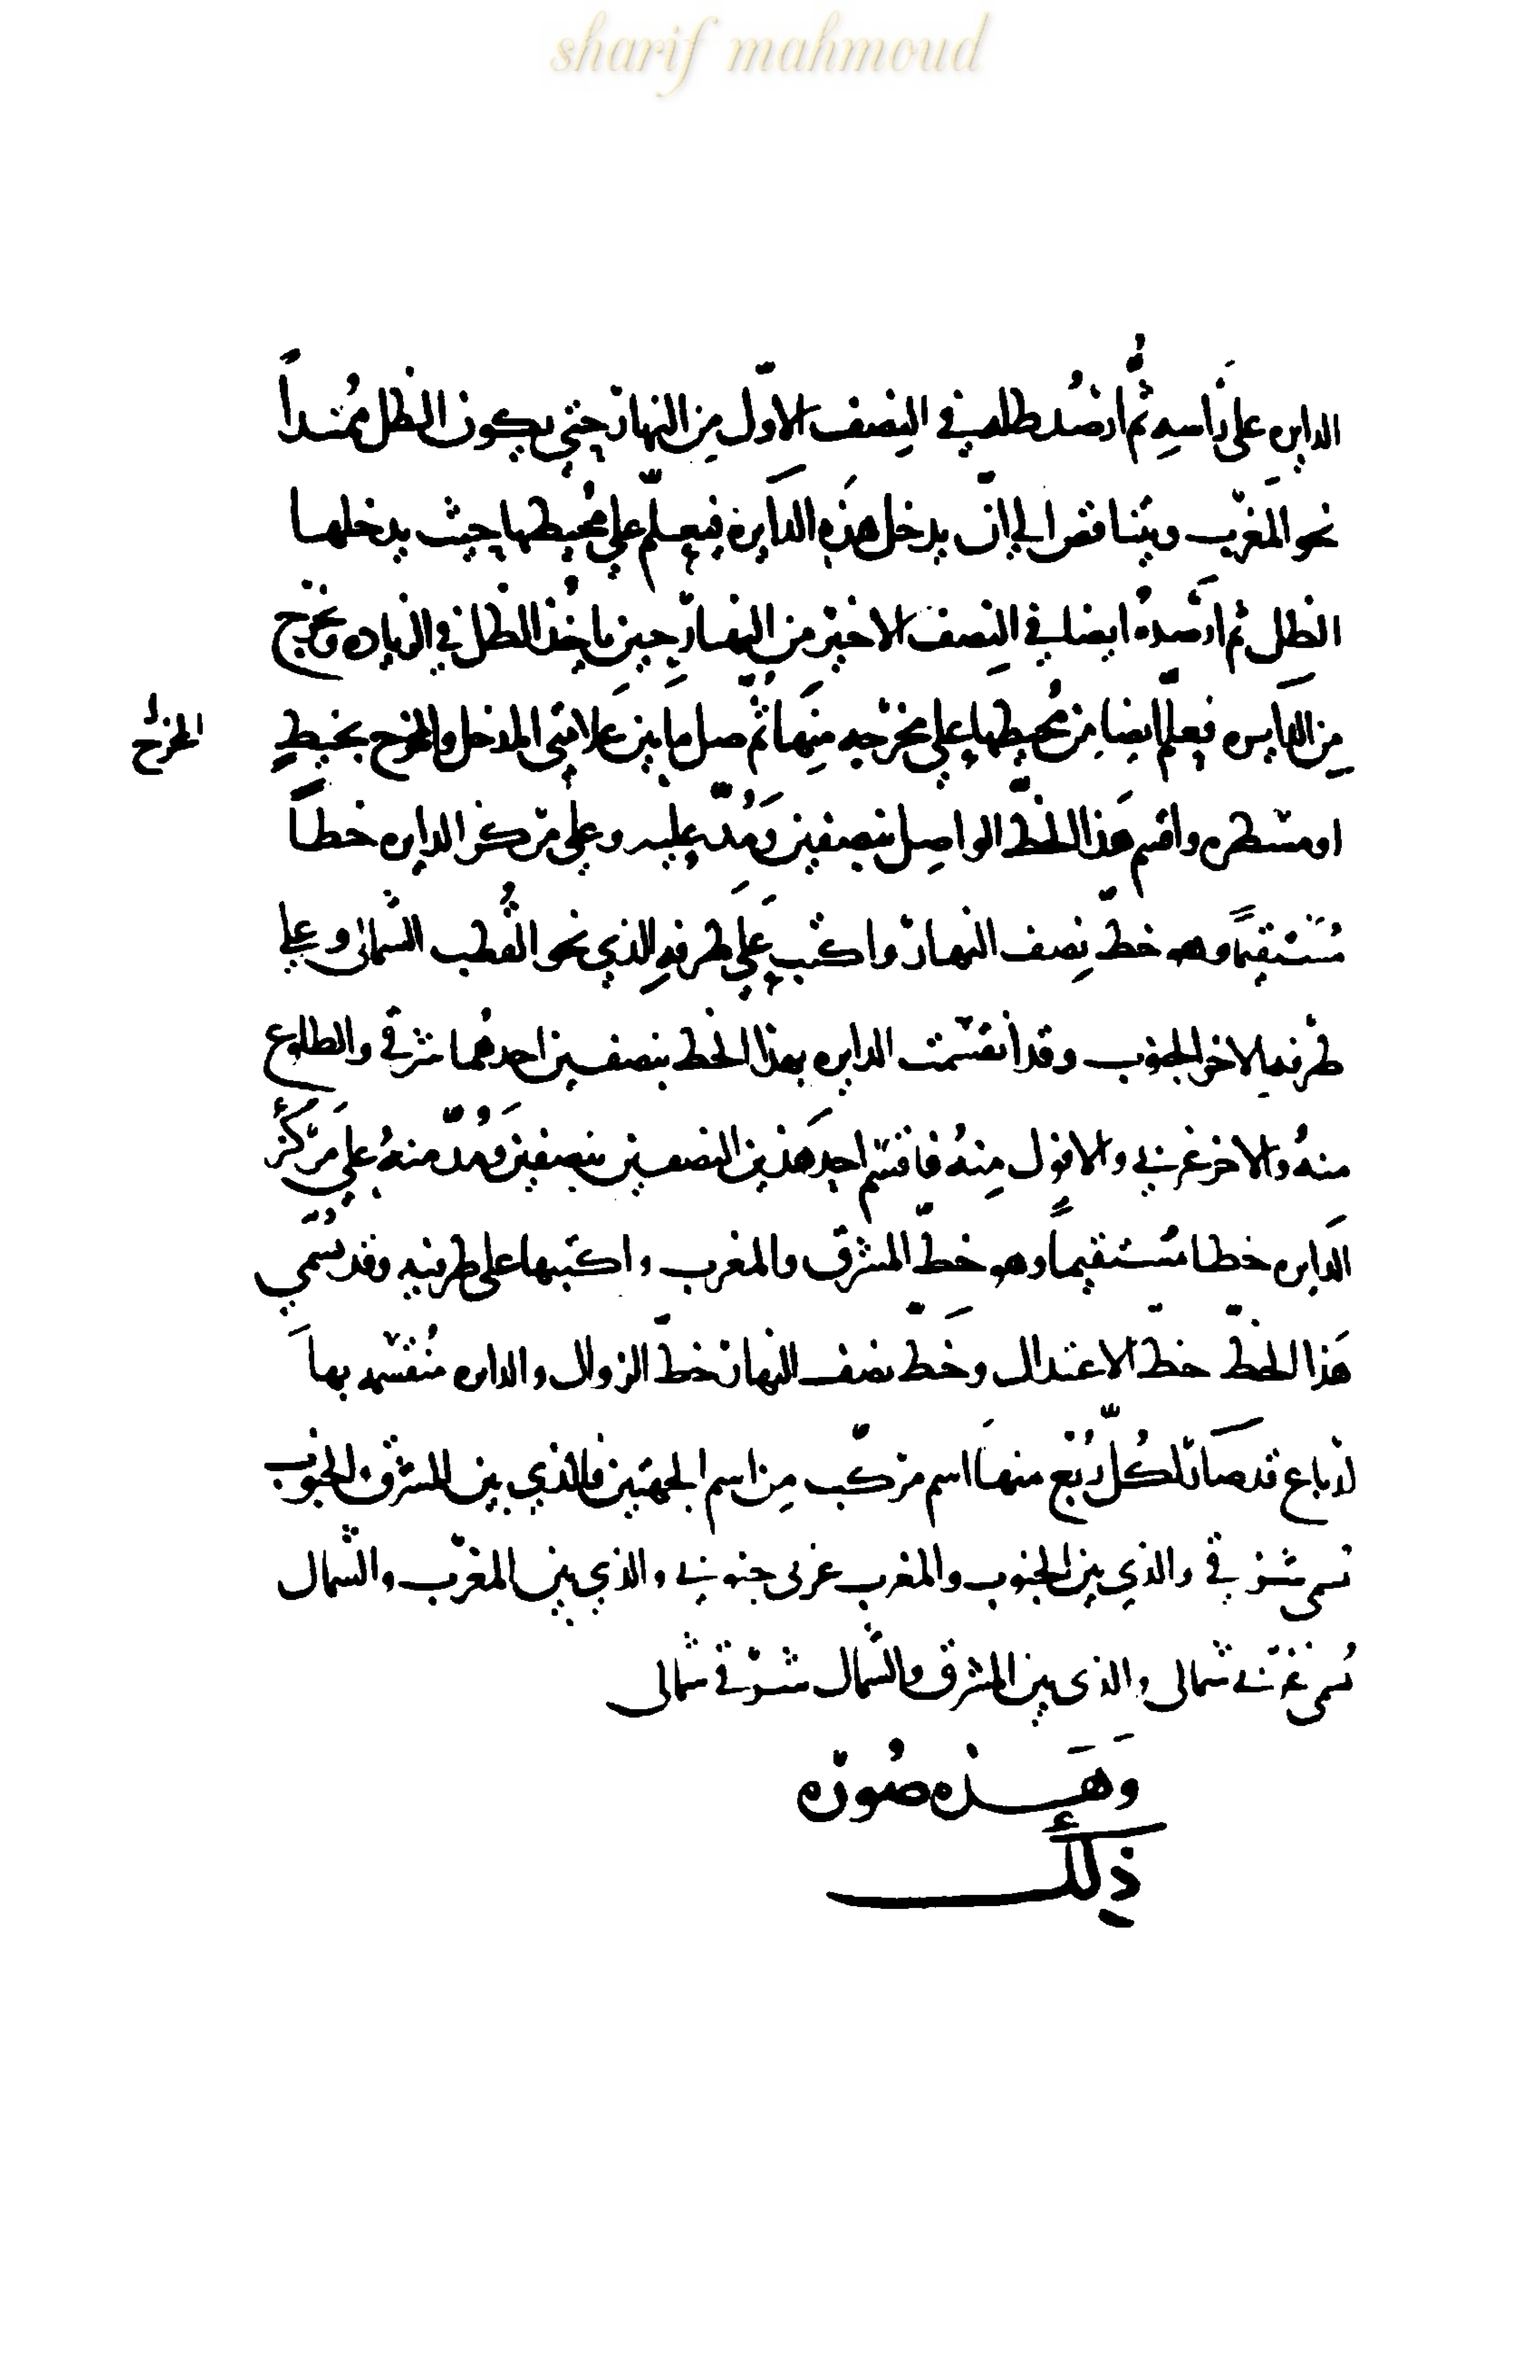 sharif mahmoud
الدايره على رَاسِه ثُم ارصُد ظله في النِصف الاوّل مِن النهار حتى يكون الظل مُمتداً
نحو المَغرب ويتناقص الى ان يدخل هَذِه الدَايره فيعلّم على مُحيطها حيث يدخلها
الظِل ثم ارصدهُ ايضا في النِصف الاخير من النهار حين ياخُذ الظل في الزياده وتخرج
مِن الدايره فيعلّم ايضا من مُحيطها على مخرجه مِنهَا ثُم صل مَا بين عَلامتي المدخل والمخرج بخيطٍ
المخرج
او مسطره واقسم هَذا الخطّ الواصِل بنصفين وَمُدّ عليه وعلى مركز الدايره خطاً
مُستَقيماً وهو خطّ نِصف النهار واكتب عَلى طرفهِ الذي نحو القُطب الشمال وعلى
طرفه الاخر الجنوب وقد انقسمت الدايره بهذا الخط بنصفين احدهُما شرقي والطلوع
منهُ والاخر غربي والافول مِنهُ فاقسم احد هَذين النصفين بنصفين وَمُدّ منهُ عَلى مَركز
الدَايره خطا مُستقيماً وهو خطّ المشرق والمغرب واكتبها على طرفيه وقد يُسمّي
هَذا الخطّ خطّ الاعتدال وخَطّ نصف النهار خطّ الزوال والدايره مُنقسمه بهَا
لارباع قد صَار لكُلّ رُبُع منهَا اسم مركّب مِن اسم الجهتين فالذي بين المشرق والجنوب
تسمى شرقي والذي بين الجنوب والمغرب غربى جنوبي والذي بين المغرب والشمال
تُسمى غربي شمالى والذى بين المشرق والشمال شرقي شمالى
وَهَذه صُورَه
ذَلِك